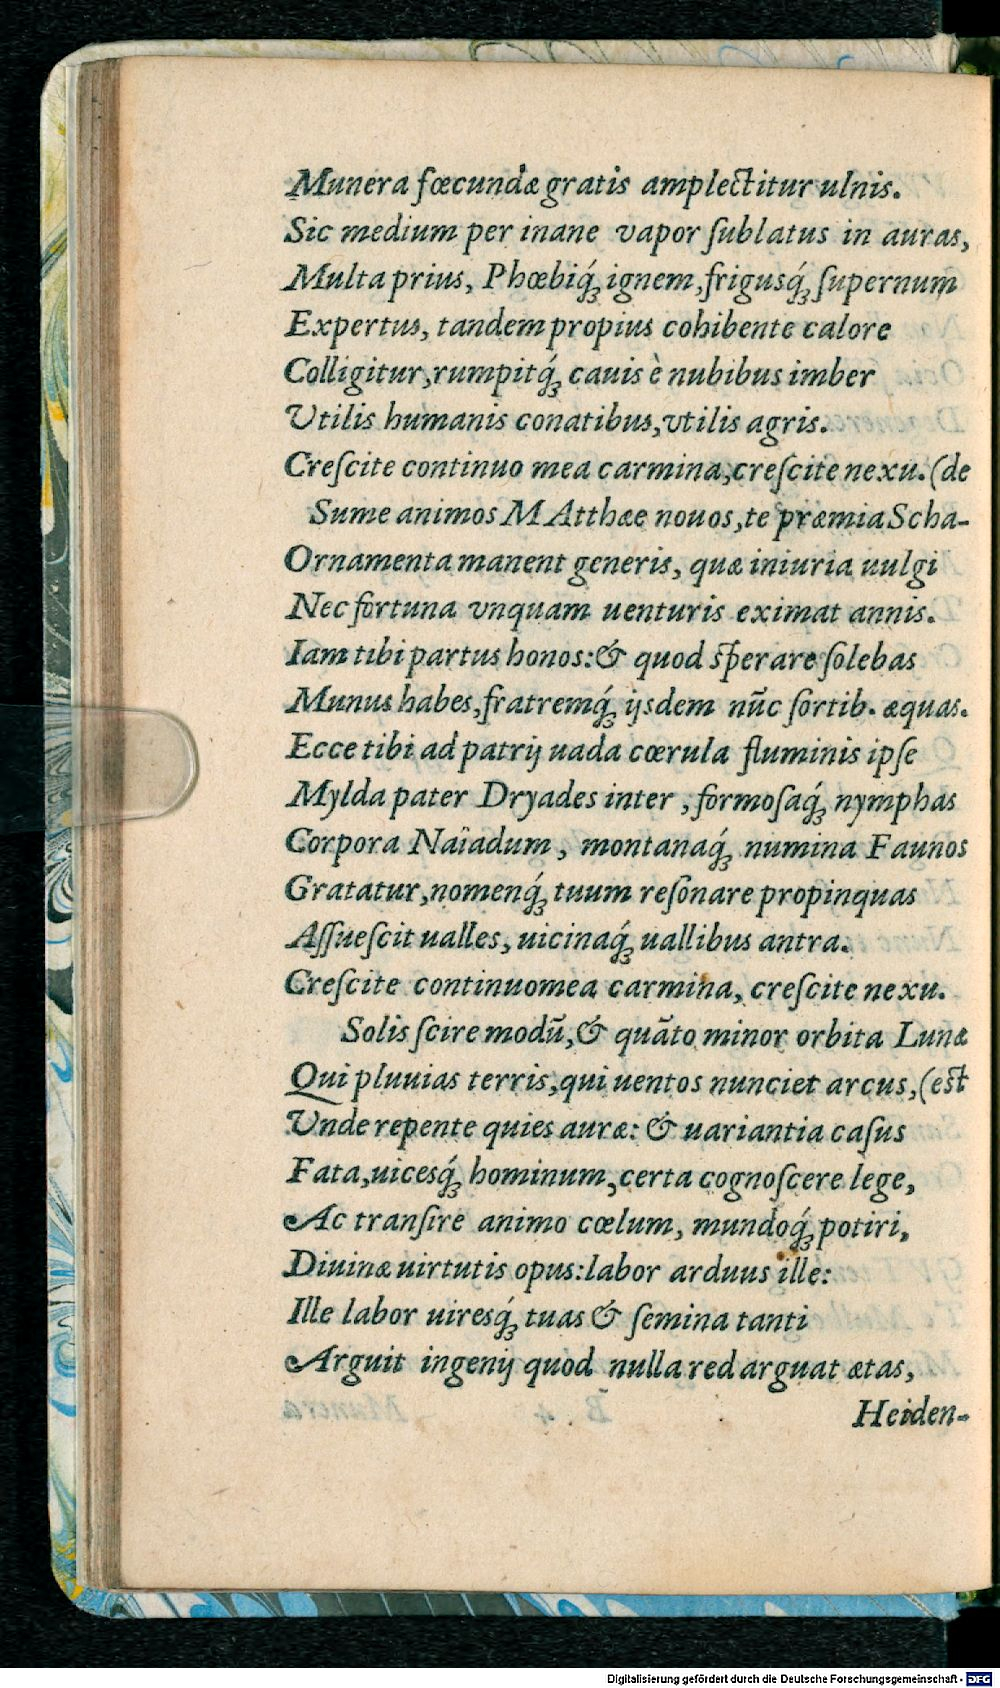 Munera fœcundæ gratis amplectitur ulnis.
Sic medium per inane vapor ſublatus in auras,
Multa prius, Phœbiq́ꝫ ignem, frigusq́ꝫ ſupernum
Expertus, tandem propius cohibente calore
Colligitur, rumpitq́ꝫ cauis è nubibus imber
Vtilis humanis conatibus, vtilis agris.
Creſcite continuo mea carmina, creſcite nexu. (de
Sume animos MAtthæe nouos, te præmia Scha-
Ornamenta manent generis, quæ iniuria uulgi
Nec fortuna vnquam uenturis eximat annis.
Iam tibi partus honos: & quod ſperare ſolebas
Munus habes, fratremq́ꝫ ijsdem nūc ſortib. æquas.
Ecce tibi ad patrij uada cœrula fluminis ipſe
Mylda pater Dryades inter, formoſaq́ꝫ nymphas
Corpora Naïadum, montanaq́ꝫ numina Faunos
Gratatur, nomenq́ꝫ tuum reſonare propinquas
Aſſueſcit ualles, uicinaq́ꝫ uallibus antra.
Creſcite continuo mea carmina, creſcite nexu.
Solis ſcire modū, & quāto minor orbita Lunæ
Qui pluuias terris, qui uentos nunciet arcus, (est
Vnde repente quies auræ: & uariantia caſus
Fata, uicesq́ꝫ hominum, certa cognoſcere lege,
Ac tranſire animo cœlum, mundoq́ꝫ potiri,
Diuinæ uirtutis opus: labor arduus ille:
Ille labor uiresq́ꝫ tuas & ſemina tanti
Arguit ingenij quod nulla redarguat ætas,
Heiden-
Digitalisierung gefördert durch die Deutsche Forschungsgemeinschaft - DFG